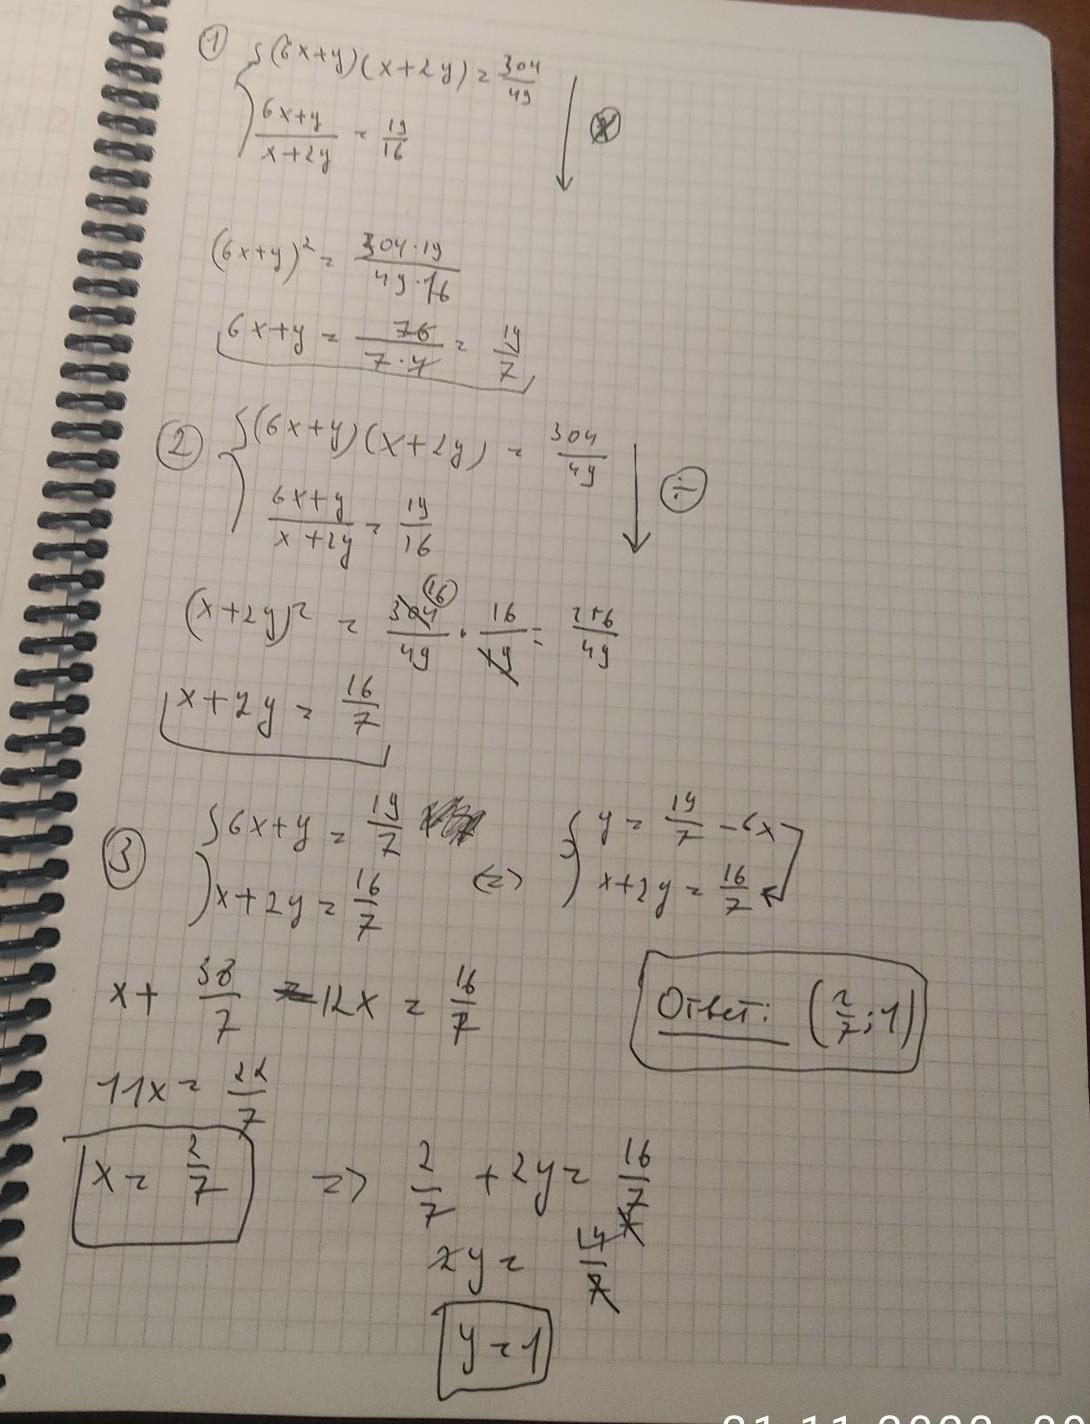 ① { (6x+y)(x+2y) = 304/49
(6x+y)/(x+2y) = 19/16
(6x+y)² = (304·19)/(49·16)
6x+y = 76/(7·4) = 19/7
② { (6x+y)(x+2y) = 304/49 ÷
(6x+y)/(x+2y) = 19/16
(x+2y)² = 304/49 · 16/19 = 256/49
16
x+2y = 16/7
③ { 6x+y = 19/7 <=> { y = 19/7 - 6x
x+2y = 16/7 x+2y = 16/7
x + 38/7 - 12x = 16/7
Ответ: (2/7; 1)
11x = 22/7
x = 2/7 => 2/7 + 2y = 16/7
2y = 14/7
y = 1